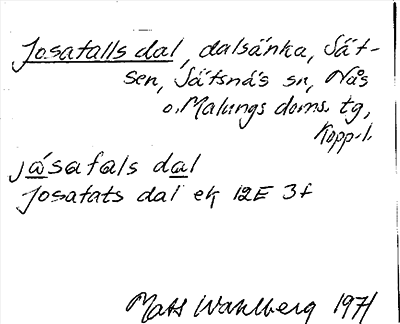 Josafalls dal, dalsänka, Sät-
sen, Sätsnäs sn, Nås
o. Malungs doms. tg,
Kopp. l.
jåsafals dal
Josafats dal ek 12E 3f
Mats Wahlberg 1971